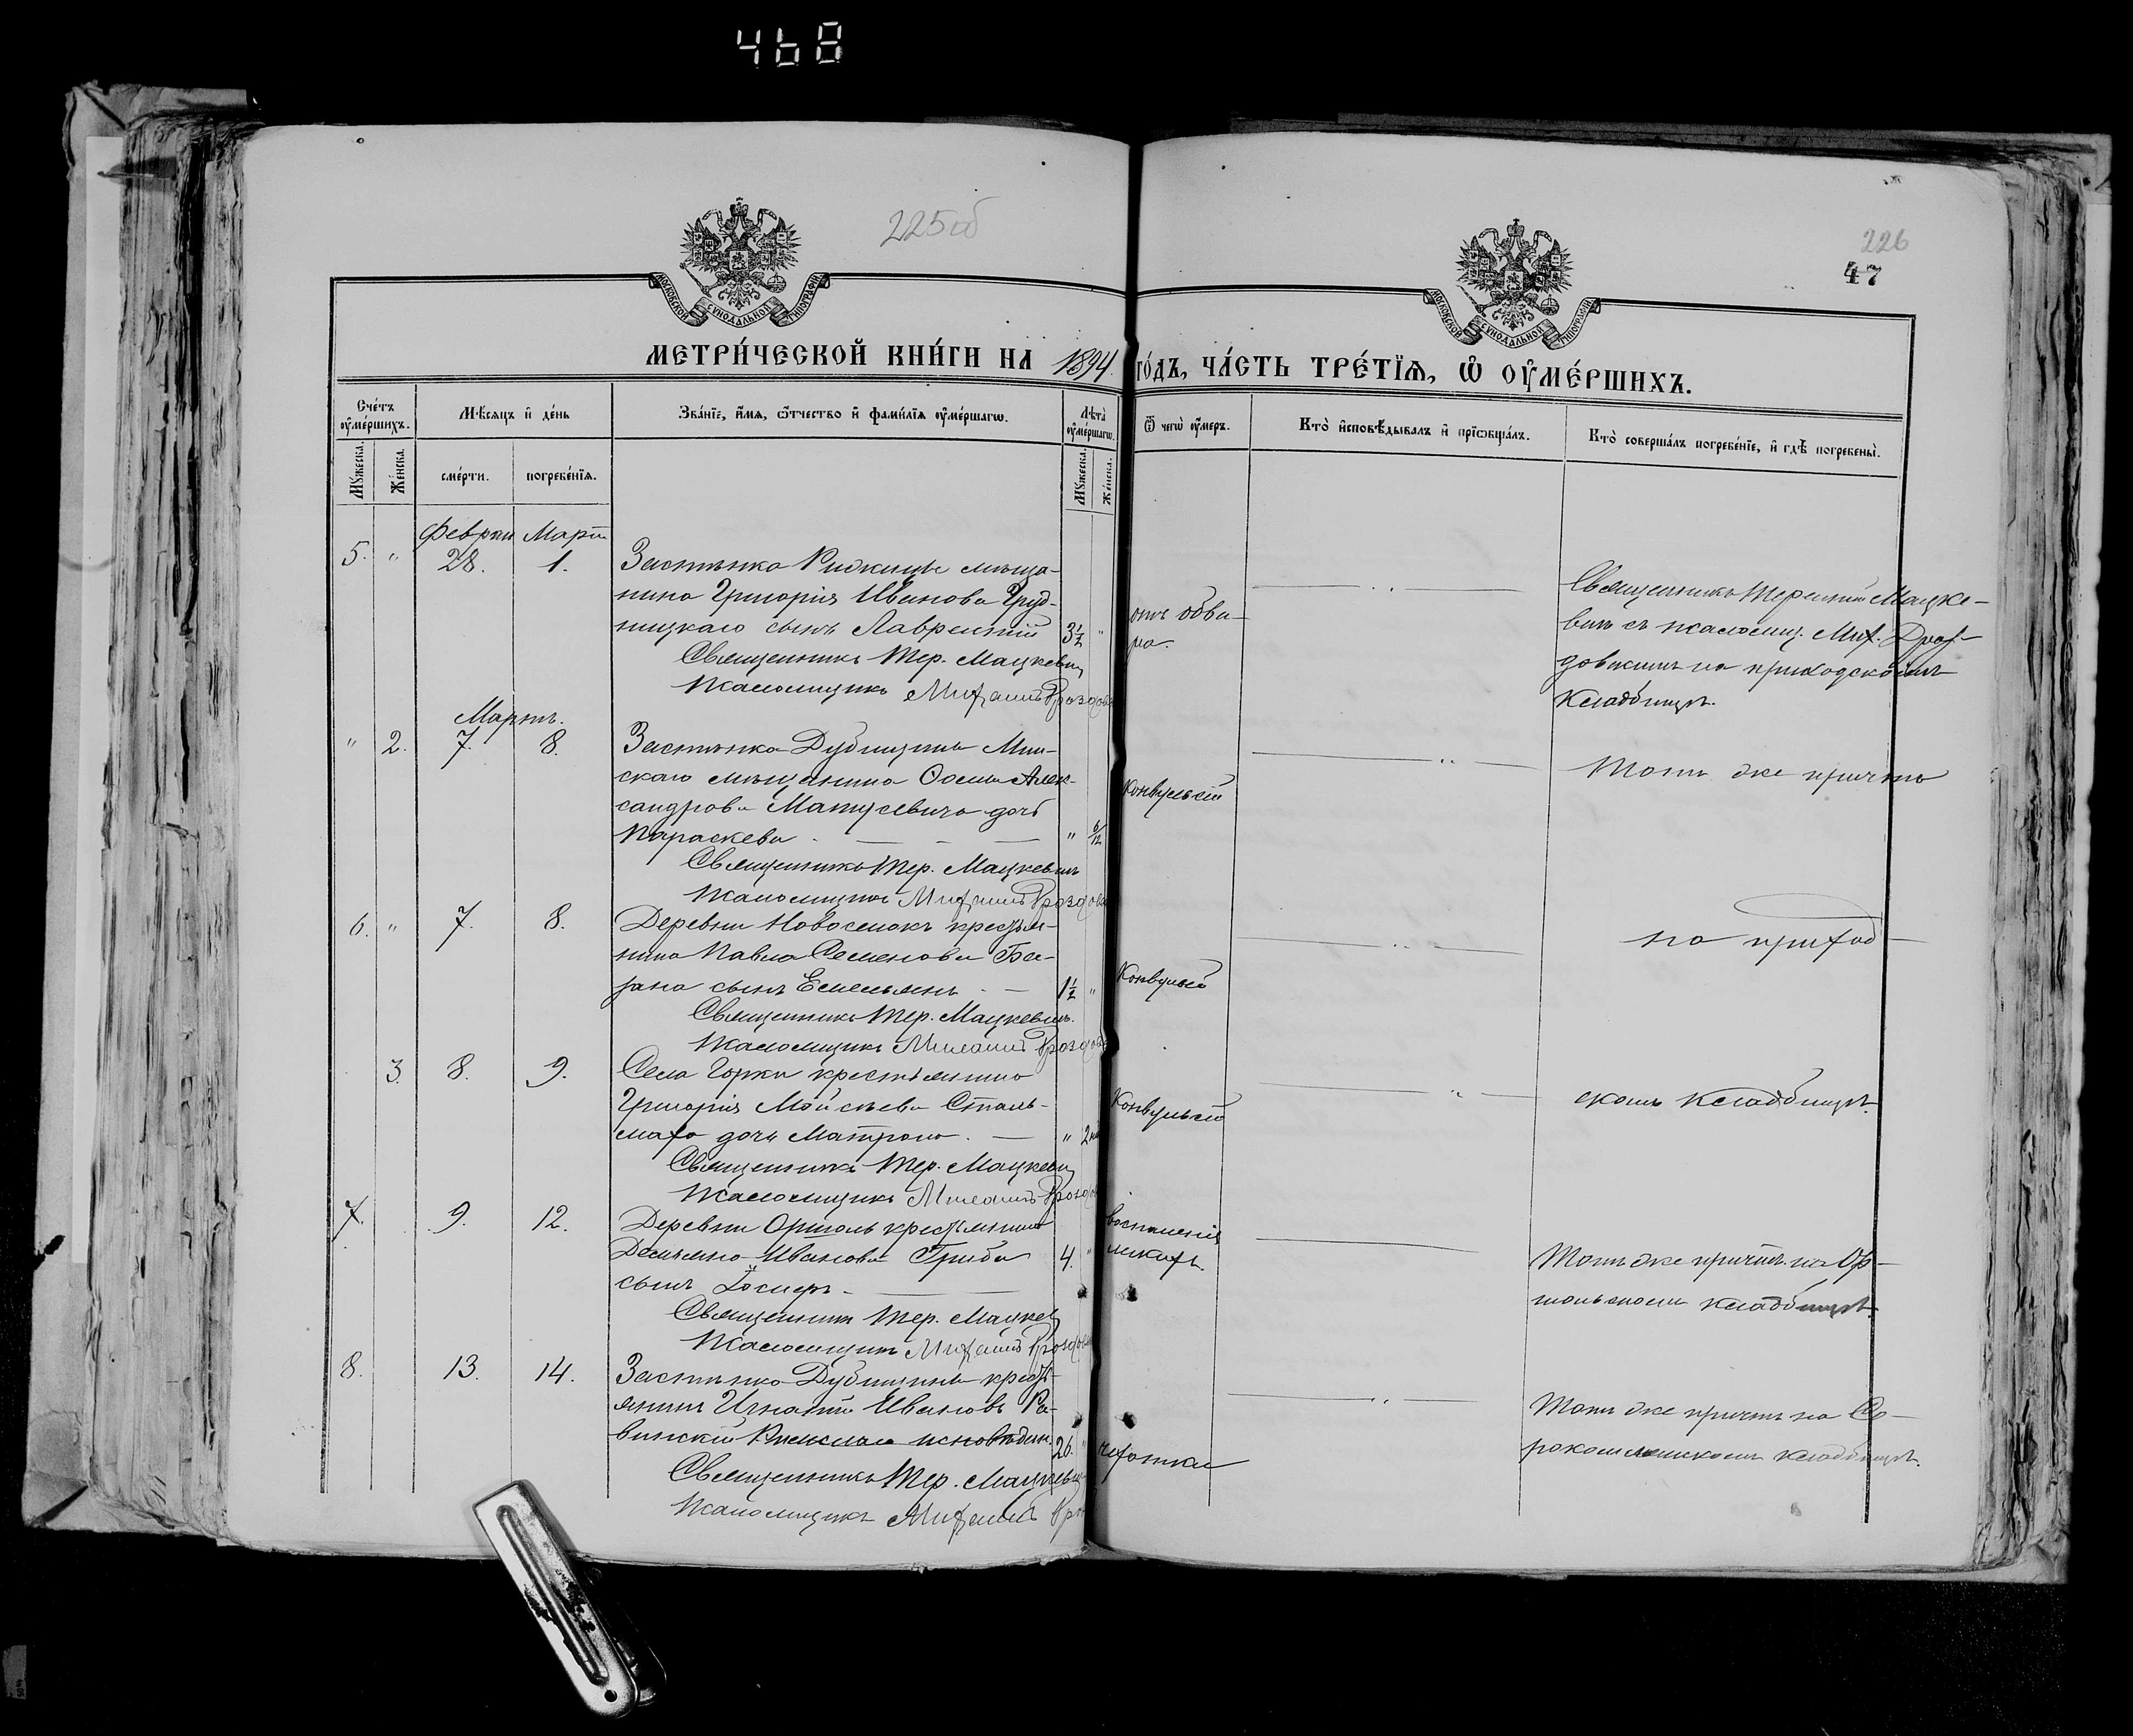 468
225об
226
47
МОСКОВСКОЙ СѴНОДАЛЬНОЙ ТИПОГРАФІИ
МОСКОВСКОЙ СѴНОДАЛЬНОЙ ТИПОГРАФІИ
МЕТРИ́ЧЕСКОЙ КНИ́ГИ НА 1894. ГО́ДЪ, ЧА́СТЬ ТРЕ́ТЇѦ, Ѽ ОУ҆МЕ́РШИХЪ.
Сче́тъ оу҆ме́ршихъ.
Мѣсяцъ и҆ де́нь
Зва́нїе, и҆́мя, ѻ҆́тчество и҆ фами́лїя оу҆ме́ршагѡ.
Лѣта̀ оу҆ме́ршагѡ.
Ѿ чегѡ̀ оу҆́меръ.
Кто̀ и҆сповѣ́дывалъ и҆ прїѡбща́лъ.
Кто̀ соверша́лъ погребе́нїе, и҆ гдѣ̀ погребены̀.
Мꙋ́жеска.
Же́нска.
сме́рти.
погребе́нїя.
Мꙋ́жеска.
Же́нска.
5. "
28. 1.
Застѣнка мѣща-
нина Григорія Иванова Груд-
ницкаго сынъ Лаврентій 3½ "
Священникъ Тер. Мацкевич
Псаломщикъ Михаилъ Дроздов
отъ обва-
ра.
Священникъ Терентій Мацке-
вичъ съ псаломщ. Мих. Дроз-
довымъ на приходскомъ
кладбищѣ.
Мартъ.
" 2. 7. 8.
Застѣнка Дубищина Мин-
скаго мѣщанина Ѳомы Алек-
сандрова Матусевича дочь
Параскева " 6/12
Священникъ Тер. Мацкевичъ
Псаломщикъ Михаилъ Дроздов
Конвульсій
Тотъ же причтъ
6. " 7. 8.
Деревни Новоселокъ крестья-
нина Павла Семенова Ба-
рана сынъ Емельянъ 1½ "
Священникъ Тер. Мацкевичъ.
Псаломщикъ Михаилъ Дроздов
Конвульсій
на приход-
3. 8. 9.
Села Горки крестьянина
Григорія Мойсѣева Сталь-
маха дочь Матрона. " 2
Священникъ Тер. Мацкевич
Псаломщикъ Михаилъ Дроздов
Конвульсій
скомъ кладбищѣ.
7. 9. 12.
Деревни Орѣшоль крестьянина
Демьяна Иванова Гриба 4. "
сынъ Іосифъ
Священникъ Тер. Мацкев
Псаломщикъ Михаилъ Дроздов
воспаленія
легкихъ.
Тотъ же причтъ на
кладбищѣ.
8. 13. 14.
Застѣнка Дубищина кресть-
янинъ Игнатій Ивановъ Ра-
винскій 26. "
Священникъ Тер. Мацкевич
Псаломщикъ Михаилъ Дро
чахотки
Тотъ же причтъ на Со-
кладбищѣ.